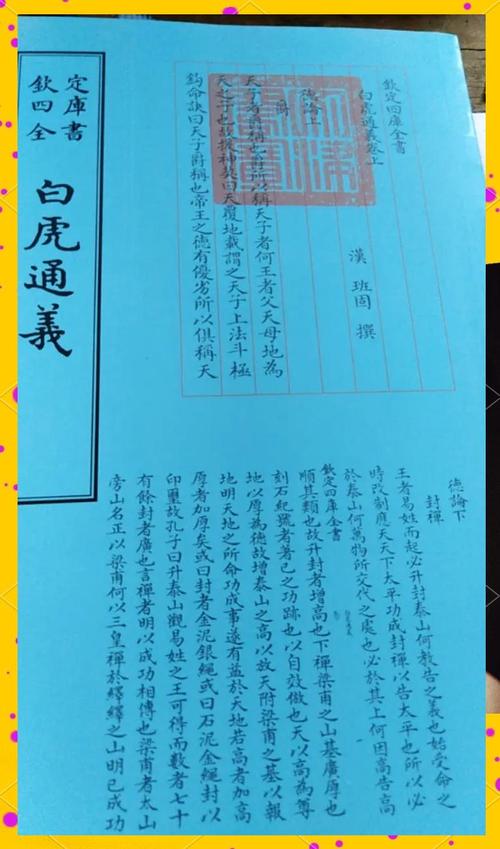 欽定
四庫
全書
白虎通義
欽定四庫全書
白虎通義卷上
漢 班固 撰
德論上
爵
天子者爵稱也爵所以稱天子者何王者父天母地為
天之子也故援神契曰天覆地載謂之天子上法斗極
鈎命訣曰天子爵稱也帝王之德有優劣所以俱稱天
德論下
封禪
王者易姓而起必升封泰山何教告之義也始受命之
時改制應天天下太平功成封禪以告太平也所以必
於泰山何萬物所交代之處也必於其上何因高告高
欽定四庫全書
順其類也故升封者增高也下禪梁甫之山基廣厚也
刻石紀號者著己之功跡也以自效倣也天以高為尊
地以厚為德故增泰山之高以放天附梁甫之基以報
地明天地之所命功成事遂有益於天地若高者加高
厚者加厚矣或曰封者金泥銀繩或曰石泥金繩封以
印璽故孔子曰升泰山觀易姓之王可得而數者七十
有餘封者廣也言禪者明以成功相傳也梁甫者太山
旁山名正以梁甫何以三皇禪於繹繹之山明已成功